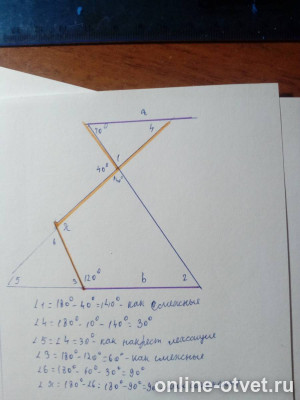 a
70° 4
1
40°
x
6
5 3 120° b 2
∠1 = 180° - 40° = 140° - как смежные
∠4 = 180° - 10° - 140° = 30°
∠5 = ∠4 = 30° - как накрест лежащие
∠3 = 180° - 120° = 60° - как смежные
∠6 = 180° - 60° - 30° = 90°
∠x = 180° - ∠6 = 180° - 90° =
online-otvet.ru